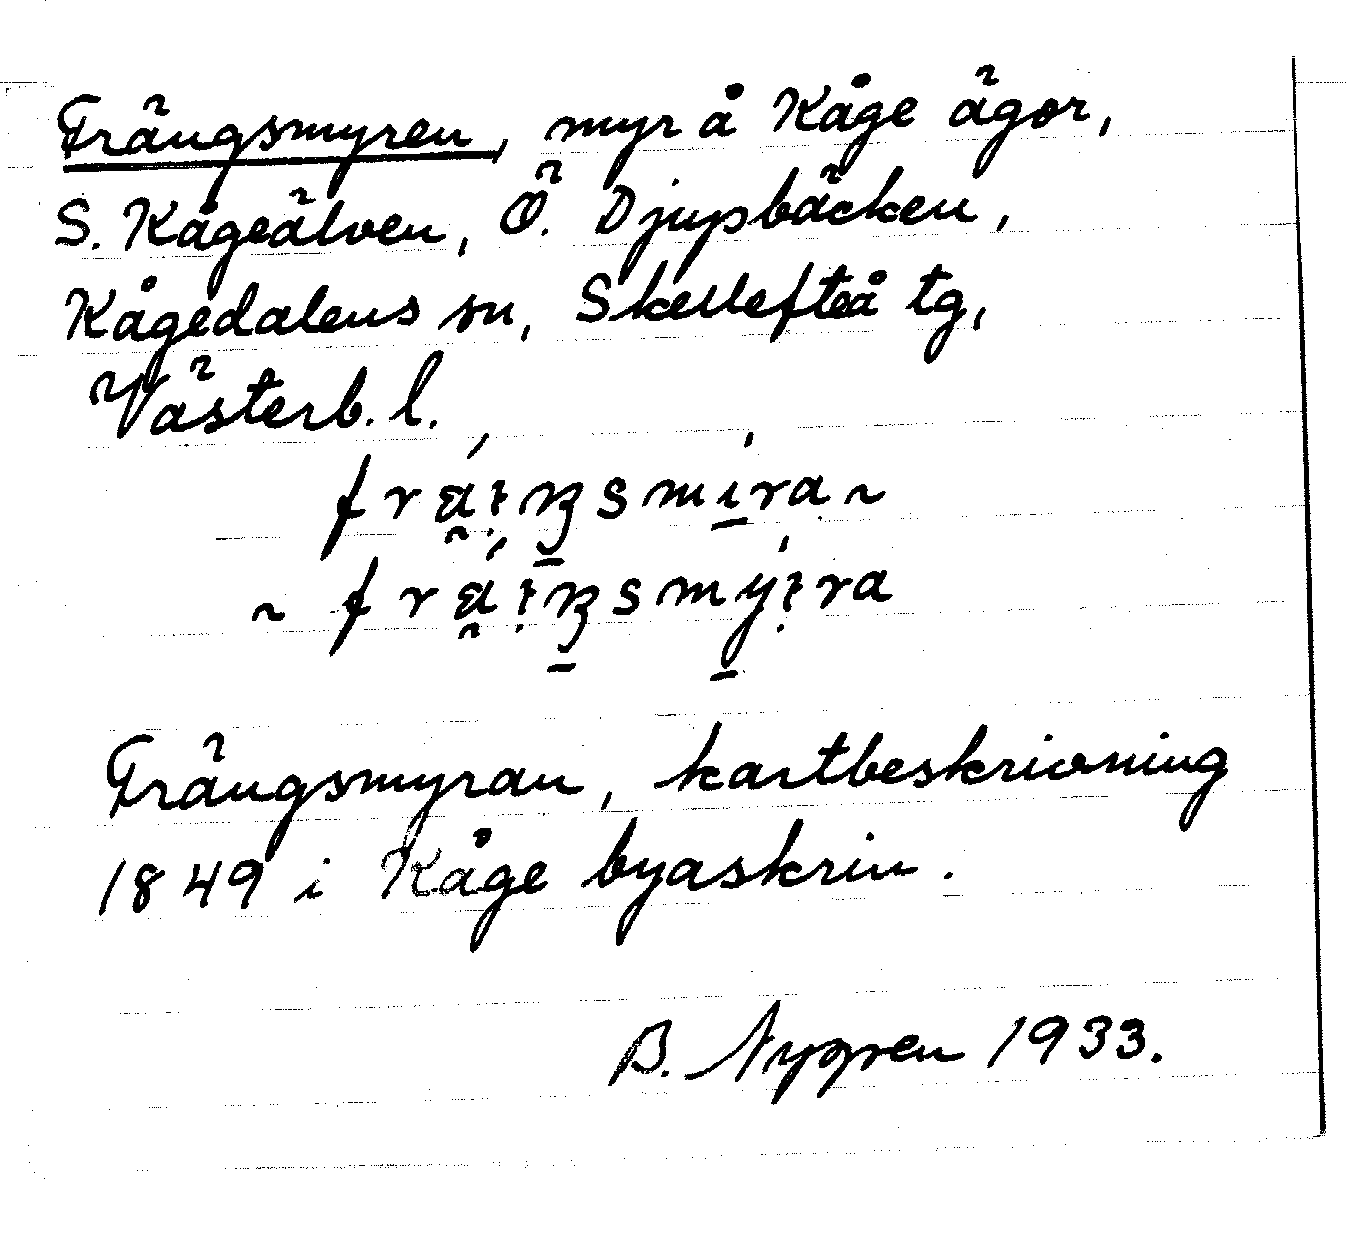 Frängsmyren, myr å Kåge ägor,
S. Kågeälven, Ö. Djupsbäcken,
Kågedalens sn, Skellefteå tg,
Västerb. l.
Frängsmyran, kartbeskrivning
1849 i Kåge byaskrin.
B. Nygren 1933.